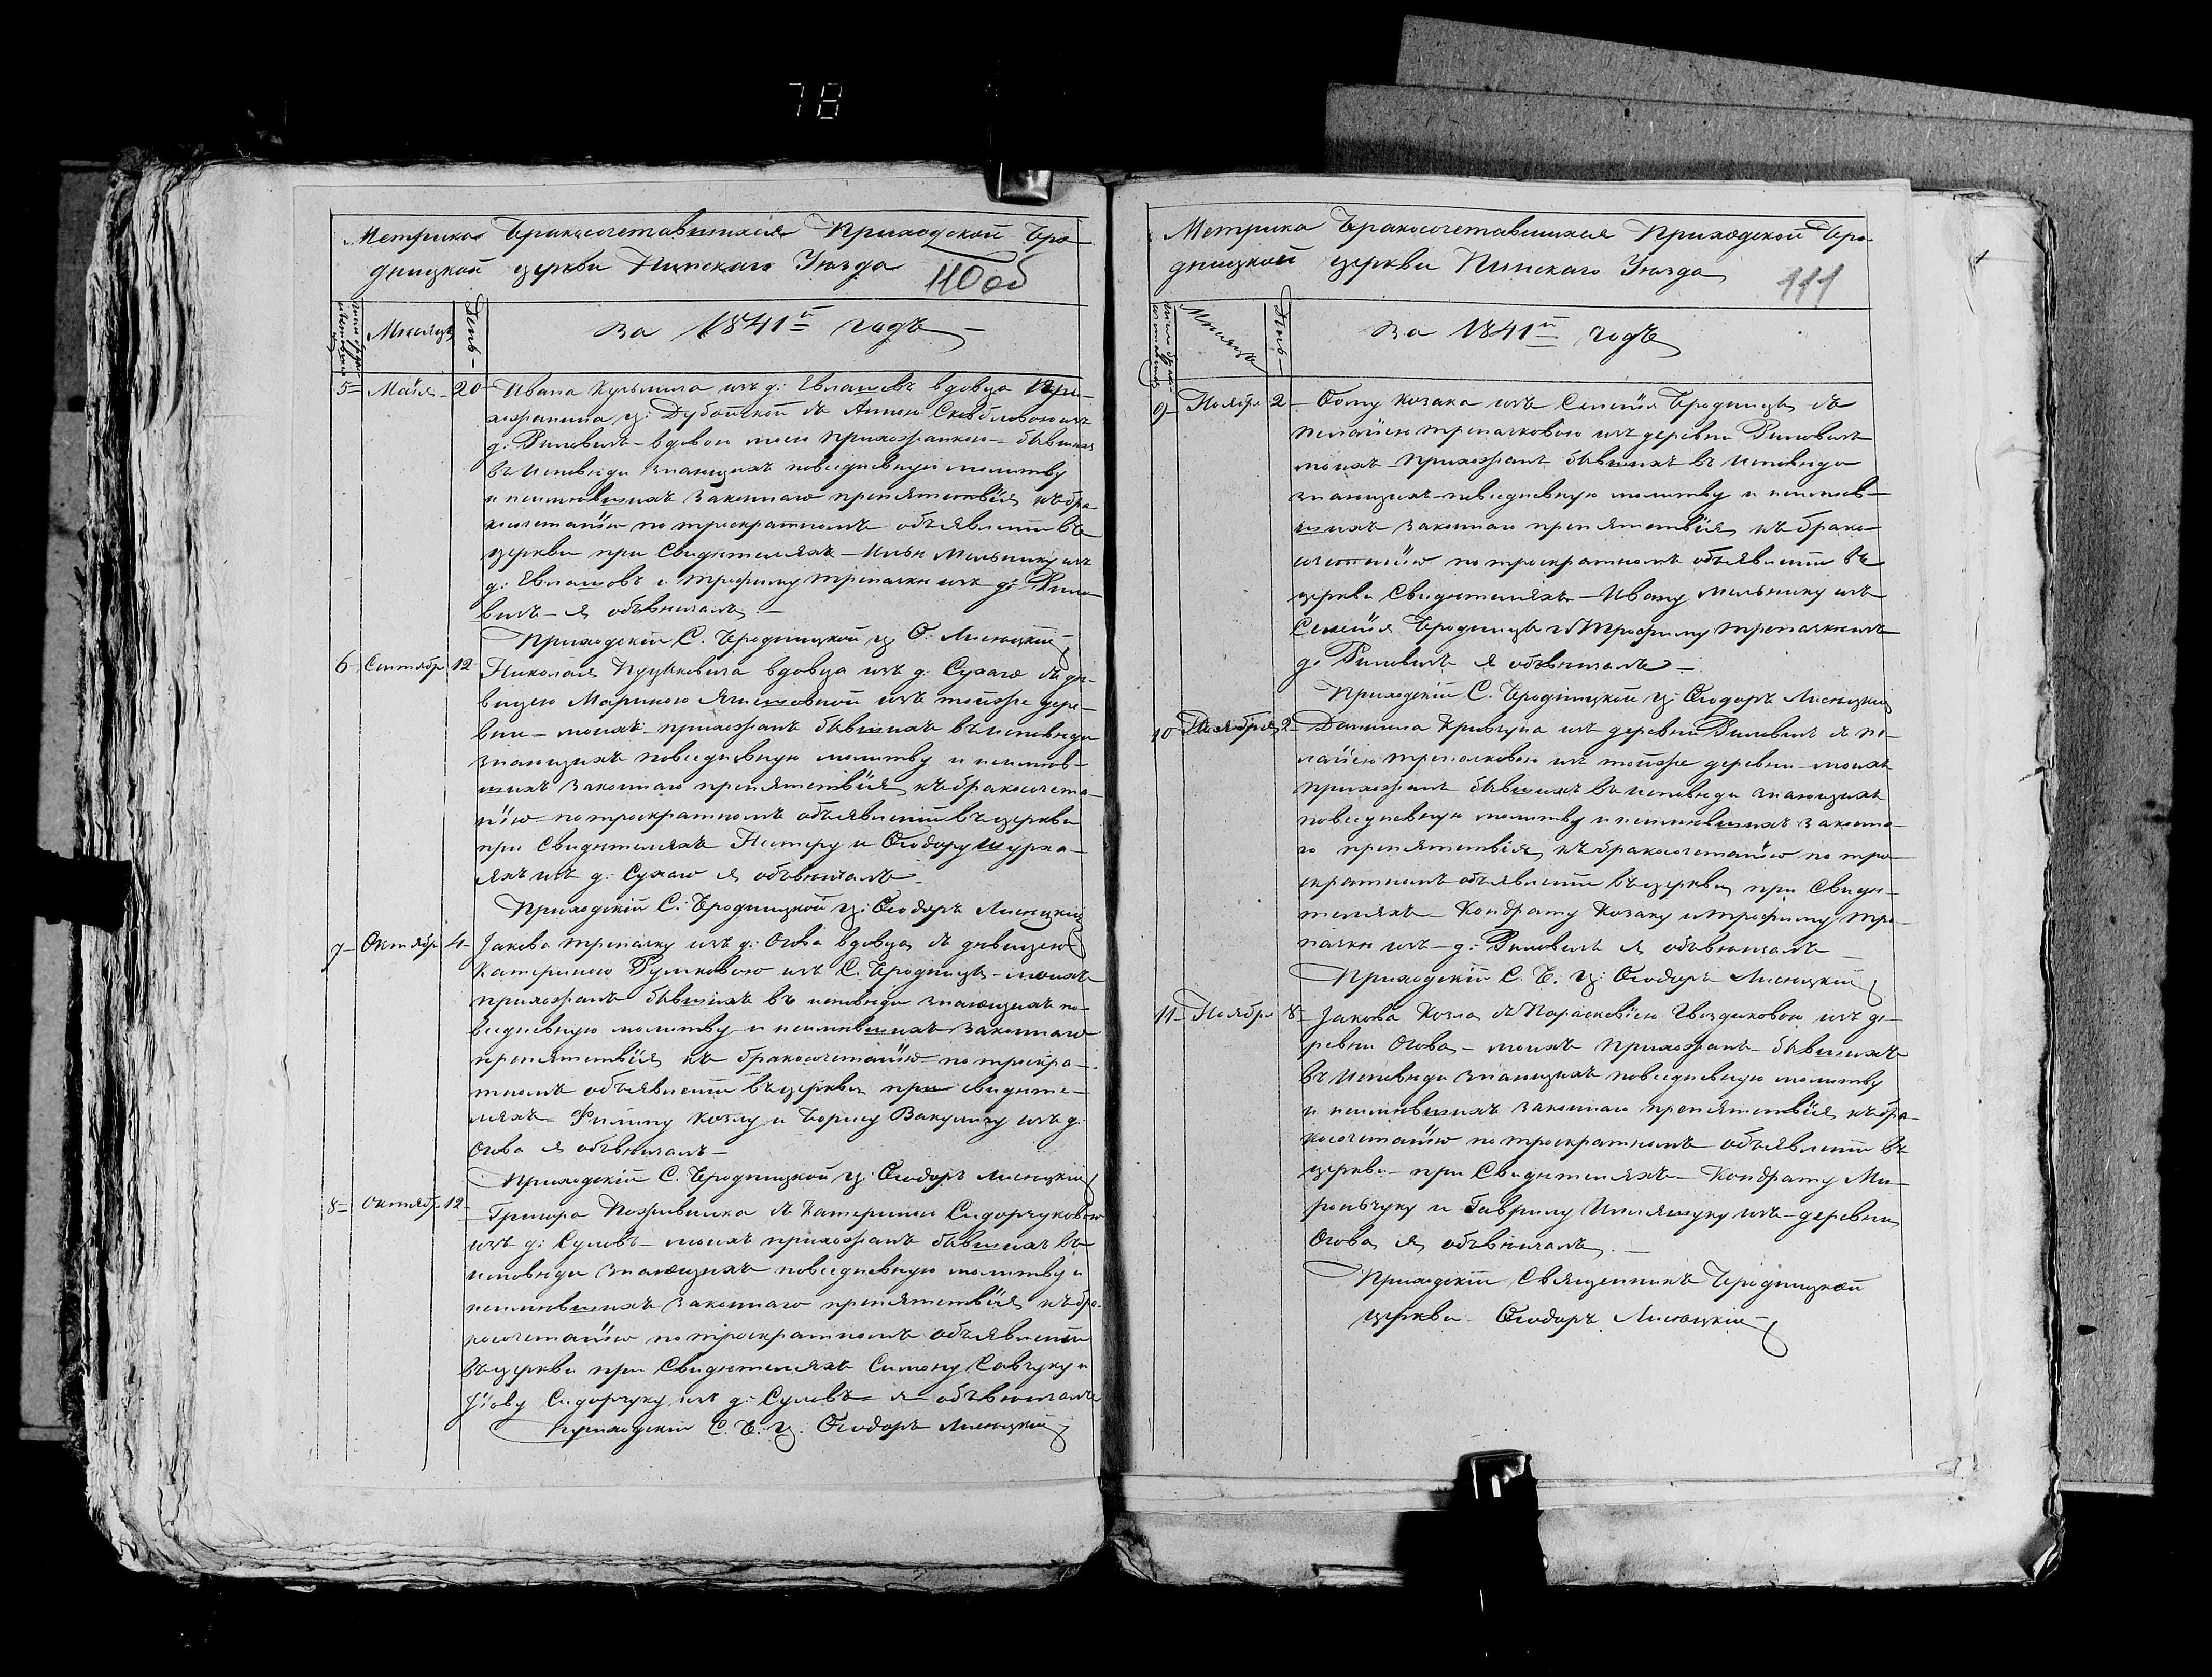 78
Метрика Бракосочетавшихся Приходской Бро
дницкой церкви Пинскаго Уѣзда
110 об
Мѣсяцъ День за 1841й годъ
5 Маія 20 Ивана Кузьмича изъ д: Евлашевъ вдовца При-
хожанина ц: Дубойской съ Анною изъ
д: Виловичъ вдовою моею прихожанкою бывшихъ
въ исповѣди знающихъ повседневную молитву
и неимѣвшихъ законнаго препятствія къ бра
косочетанію по троекратномъ объявленіи въ
церкви при Свидѣтеляхъ Ильи Мельнику изъ
д: Евлашовъ и Трофиму Трепачки изъ д:
вичъ я обвѣнчалъ
Приходскій С. Бродницкой ц: Ѳ: Лисецкій
6 Сентября 12 Николая вдовца изъ д: Сухаго съ дѣ-
вицею Мариною изъ тойже дере-
вни моихъ прихожанъ бывшихъ въ исповѣди
знающихъ повседневную молитву и неимѣв-
шихъ законнаго препятствія къ бракосочета-
нію по троекратномъ объявленіи въ церкви
при Свидѣтеляхъ Нестеру и Ѳеодору Шурха-
яхъ изъ д: Сухаго я обвѣнчалъ
Приходскій С. Бродницкой ц: Ѳеодоръ Лисецкій
7 Октября 4 Іакова Трепачку изъ д: Огова вдовца съ дѣвицею
Катериною изъ С. Бродница моихъ
прихожанъ бывшихъ въ исповѣди знающихъ по-
вседневную молитву и неимѣвшихъ законнаго
препятствія къ бракосочетанію по троекра-
тномъ объявленіи въ церкви при свидѣте-
ляхъ Филипу Козлу и Борису Вакуличу изъ д:
Огова я обвѣнчалъ
Приходскій С. Бродницкой ц: Ѳеодоръ Лисецкій
8 Октября 12 Григора съ Катериною Сидорчуковою
изъ д: Сулевъ моихъ прихожанъ бывшихъ въ
исповѣди знающихъ повседневную молитву и
неимѣвшихъ законнаго препятствія къ бра-
косочетанію по троекратномъ объявленіи
въ церкви при Свидѣтеляхъ Симону Савчуку и
Іову Сидорчуку изъ д: Сулевъ я обвѣнчалъ
Приходскій С. Б. ц. Ѳеодоръ Лисецкій
Метрика Бракосочетавшихся Приходской Бро-
дницкой церкви Пинскаго Уѣзда
111
Мѣсяцъ День за 1841й годъ
9 Ноября 2 Ѳому Козака изъ Селенія Бродница съ
Пелагіею Трепачковою изъ деревни Виловичъ
моихъ прихожанъ бывшихъ въ исповѣди
знающихъ повседневную молитву и неимѣв-
шихъ законнаго препятствія къ брако-
сочетанію по троекратномъ объявленіи въ
церкви Свидѣтеляхъ Ивану Мельнику изъ
Селенія Бродница и Трофиму Трепачки изъ
д. Виловичъ я обвѣнчалъ
Приходскій С. Бродницкой ц: Ѳеодоръ Лисецкій
10 Ноября 2 Даніила Кривчука изъ деревни Виловичъ съ Пе-
лагіею Трепачковою изъ тойже деревни моихъ
прихожанъ бывшихъ въ исповѣди знающихъ
повседневную молитву и неимѣвшихъ законна-
го препятствія къ бракосочетанію по трое-
кратномъ объявленіи въ церкви при Свидѣ-
теляхъ Кондрату Козаку и Трофиму Тре-
пачки изъ д: Виловичъ я обвѣнчалъ
Приходскій С. Б. ц: Ѳеодоръ Лисецкій
11 Ноября 8 Іакова Козла съ Параскевіею Гвоздиковою изъ де-
ревни Огова моихъ прихожанъ бывшихъ
въ исповѣди знающихъ повседневную молитву
и неимѣвшихъ законнаго препятствія къ бра-
косочетанію по троекратномъ объявленіи въ
церкви при Свидѣтеляхъ Кондрату Ми-
ронъчуку и Гаврилу изъ деревни
Огова я обвѣнчалъ
Приходскій Священникъ Бродницкой
церкви Ѳеодоръ Лисецкій